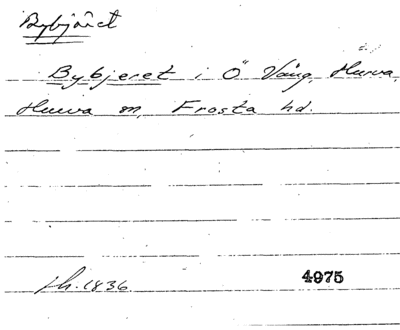 Bybjäret
Bybjeret i Ö Vång, Hurva,
Hurva sn, Frosta hd.
lh. 1836 4975